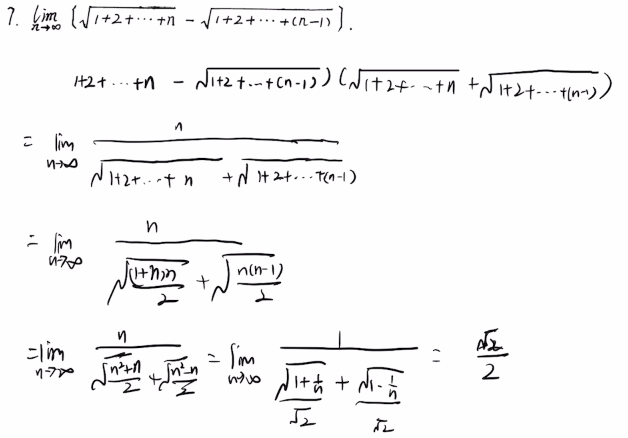 7. lim n→∞ {√(1+2+⋯+n) − √(1+2+⋯+(n−1))}.
1+2+⋯+n − √(1+2+⋯+(n−1)) (√(1+2+⋯+n) + √(1+2+⋯+(n−1)))
= lim n→∞ n / (√(1+2+⋯+n) + √(1+2+⋯+(n−1)))
= lim n→∞ n / (√((1+n)n/2) + √(n(n−1)/2))
= lim n→∞ n / (√((n²+n)/2) + √((n²−n)/2)) = lim n→∞ 1 / (√(1+1/n)/√2 + √(1−1/n)/√2) = √2/2